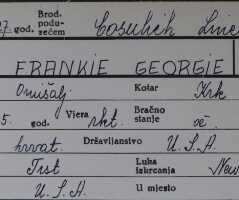 27 god. Brod. podu- zećem Cosulich Line
FRANKIE GEORGIE
Omišalj Kotar Krk
5. god. Vjera rkt. Bračno stanje ož
hrvat. Državljanstvo U.S.A.
Trst Luka izkrcanja New
U.S.A. U mjesto